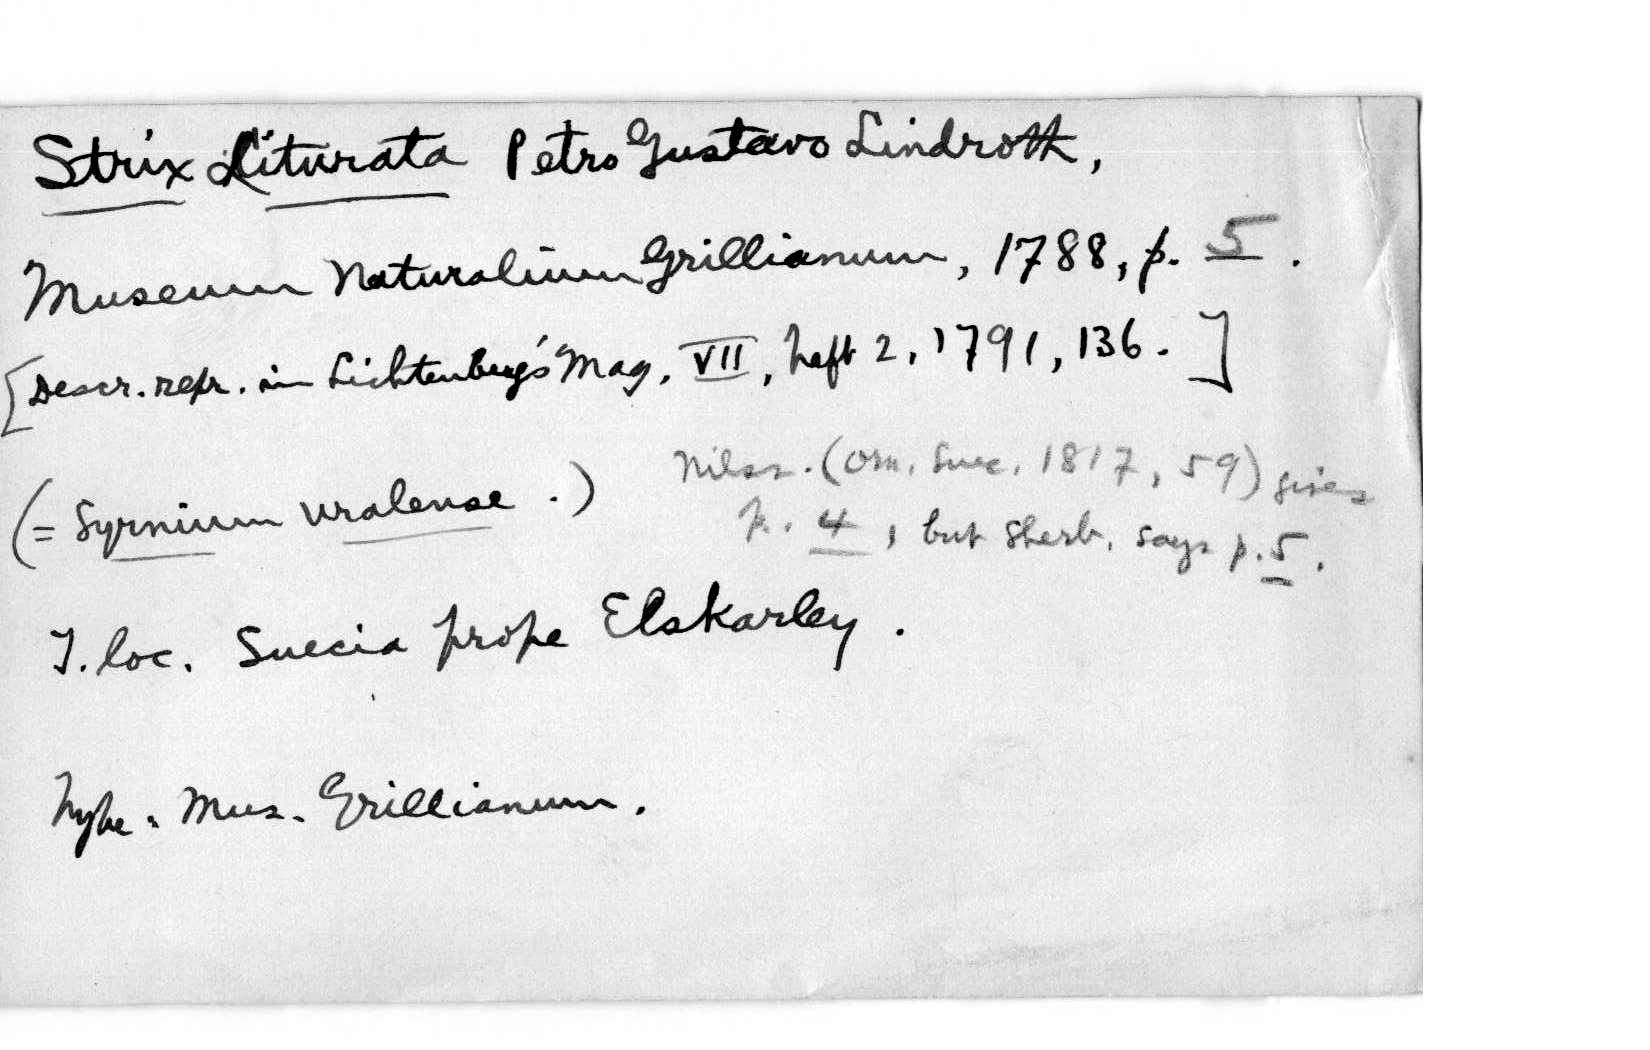 Strix Liturata Petro Gustavo Lindroth,
Museum Naturalium Grillianum, 1788, p. 5.
[Descr. repr. in Lichtenberg's Mag, VII, heft 2, 1791, 136.]
(= Syrnium uralense.)
Nilss. (Orn. Suec. 1817, 59) gives
p. 4, but Sherb. says p. 5.
T. loc. Suecia prope Elskarley.
Type: Mus. Grillianum.